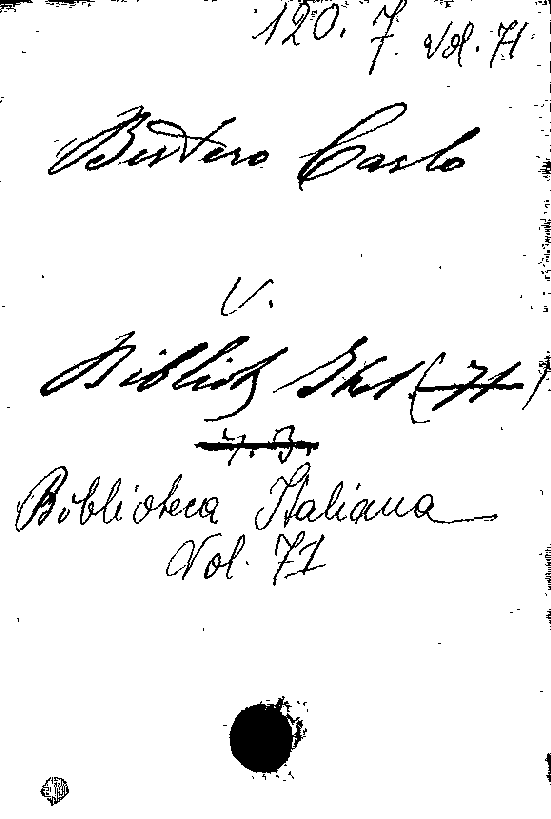 120. 7. Vol. 71
Bertero Carlo
V.
Bibliot. Ital. (71)
Biblioteca Italiana
Vol. 71